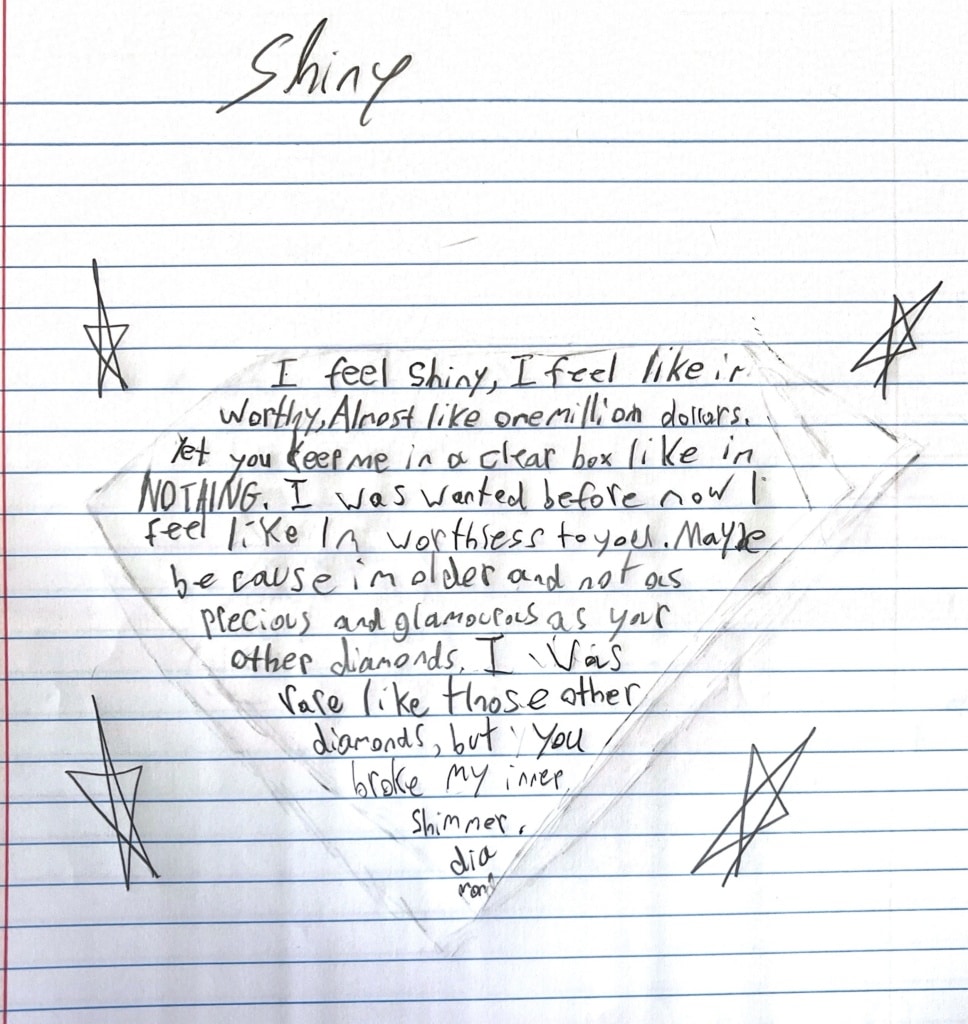 Shiny
I feel shiny, I feel like im
worthy, Almost like one million dollars.
Yet you keep me in a clear box like im
NOTHING. I was wanted before now I
feel like Im worthless to you. Maybe
because im older and not as
precious and glamourous as your
other diamonds. I was
rare like those other
diamonds, but you
broke my inner
shimmer.
dia
mond